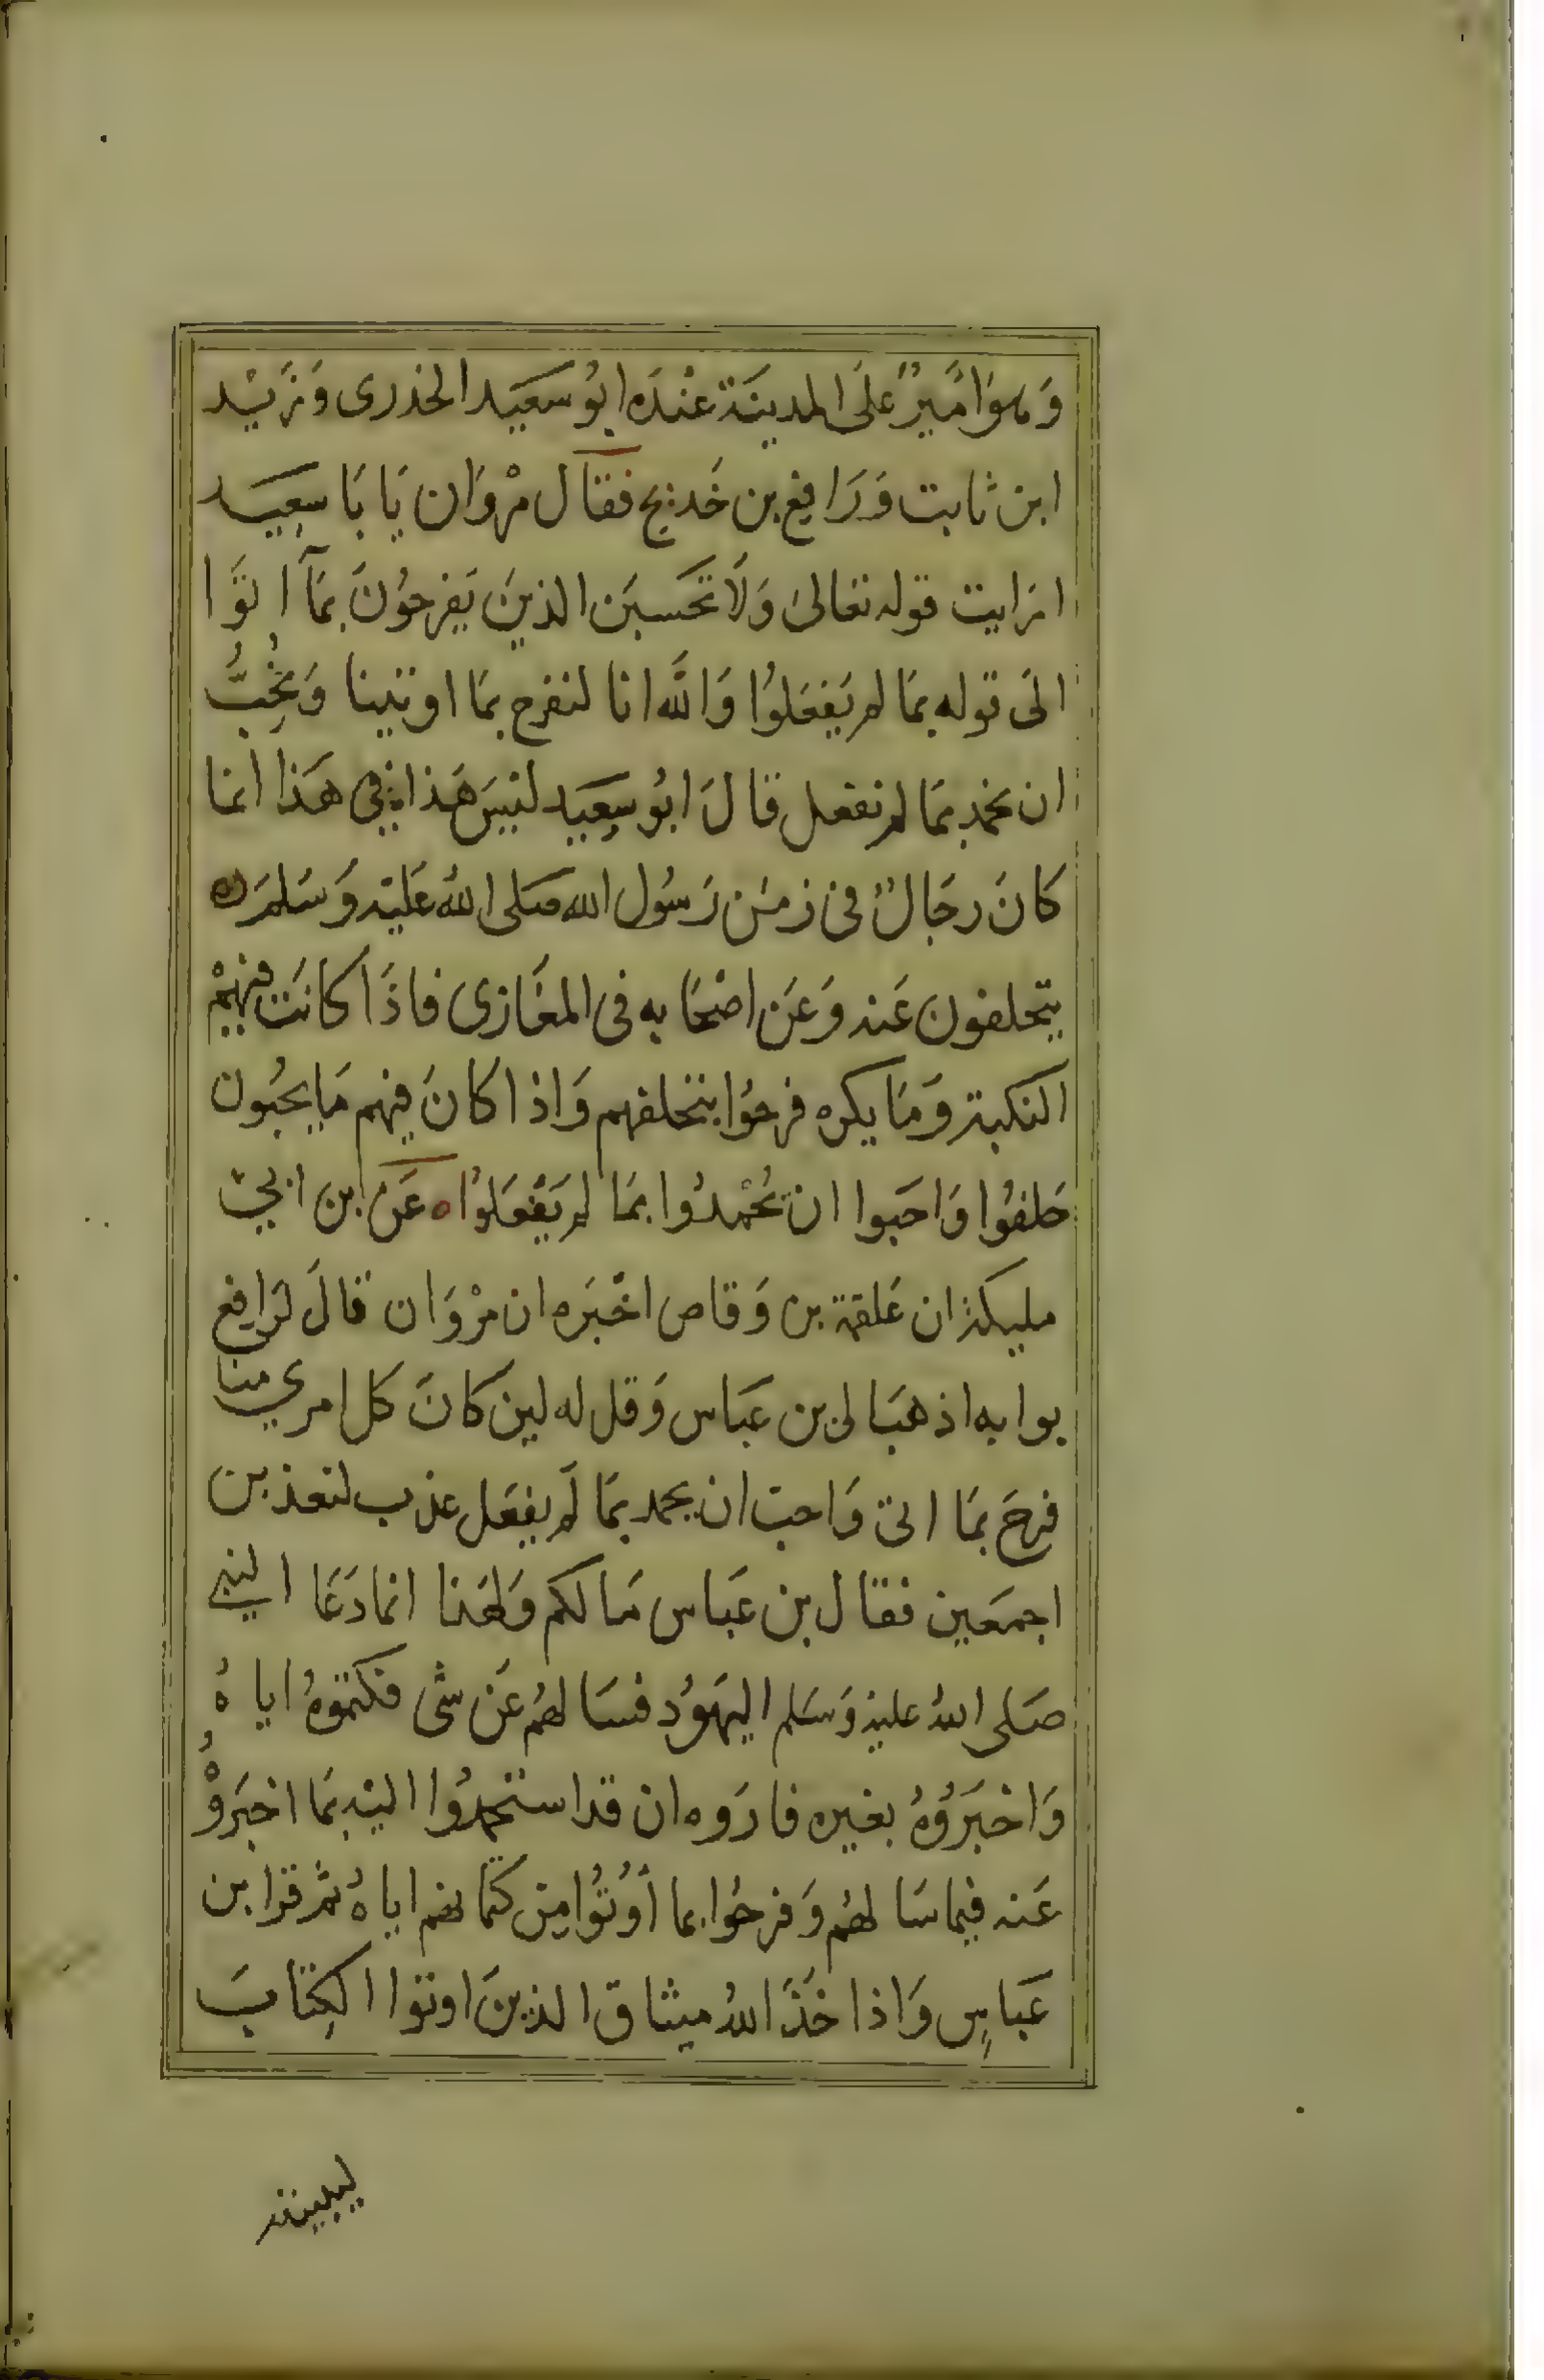 وَهوَامَيرٌ عَلَى المدينَة عنْدَه ابُو سعَيَد الخذرى وَ زَيْد
ابن ثابت وَ رَافِع بن خَديج فقَال مرْوَان يَا بَا سعِيَد
ارَايت قوله تعَالىَ وَلَا تحَسبَن الذينَ يَفرحوُنَ بمَآ اتَوَا
الىَ قوله بمَا لم يَفعَلوُا وَاللَّه انا لنفرح بمَا اوتينا وَ نحِبُّ
ان نحمد بمَا لم نفعل قالَ ابوُ سعِيَد ليسَ هَذا في هَذا انما
كانَ رجَالٌ فى زمَن رَسوُل الله صَلى اللهُ عَليْه وَسَلمَ
يتخلفون عَنه وَعَن اصْحَابه فى المغَازى فاذَا كانَت فيهِمْ
النكبة وَمَا يكره فرحوُا بتخلفهم وَاذا كانَ فيهم مَا يحبُون
حَلفوُا وَاحَبوا ان يحُمْدوُا بمَا لم يَفْعَلوُا ه عَن ابن ابيْ
مليكة ان عَلقمة بن وَقاص اخْبَره ان مرْوَان قالَ لرَافع
بوابه اذهبَ الى بن عَبَاس وَقل له لين كانَ كل امري منا
فرحَ بمَا اتى وَاحبَ ان يحمد بمَا لَم يفعَل عذب لنعذبن
اجمَعين فقال بن عَبَاس مَا لكم وَلهَذا انما دَعَا النبي
صَلى اللهُ عليه وَسَلم اليهوُد فسَالهُم عَن شى فكتموُهُ اياهُ
وَاخبَروُهُ بغيره فارَوه ان قد استحمدوُا اليْه بمَا اخبَروْهُ
عَنه فيما سَالهُم وَفرحوُا بما أوُتوُا من كتمانهم اياهُ ثم قرا بن
عَباسٍ وَاذ اخَذَ اللهُ ميثاق الذينَ اوتوا الكِتابَ
ليبيننه